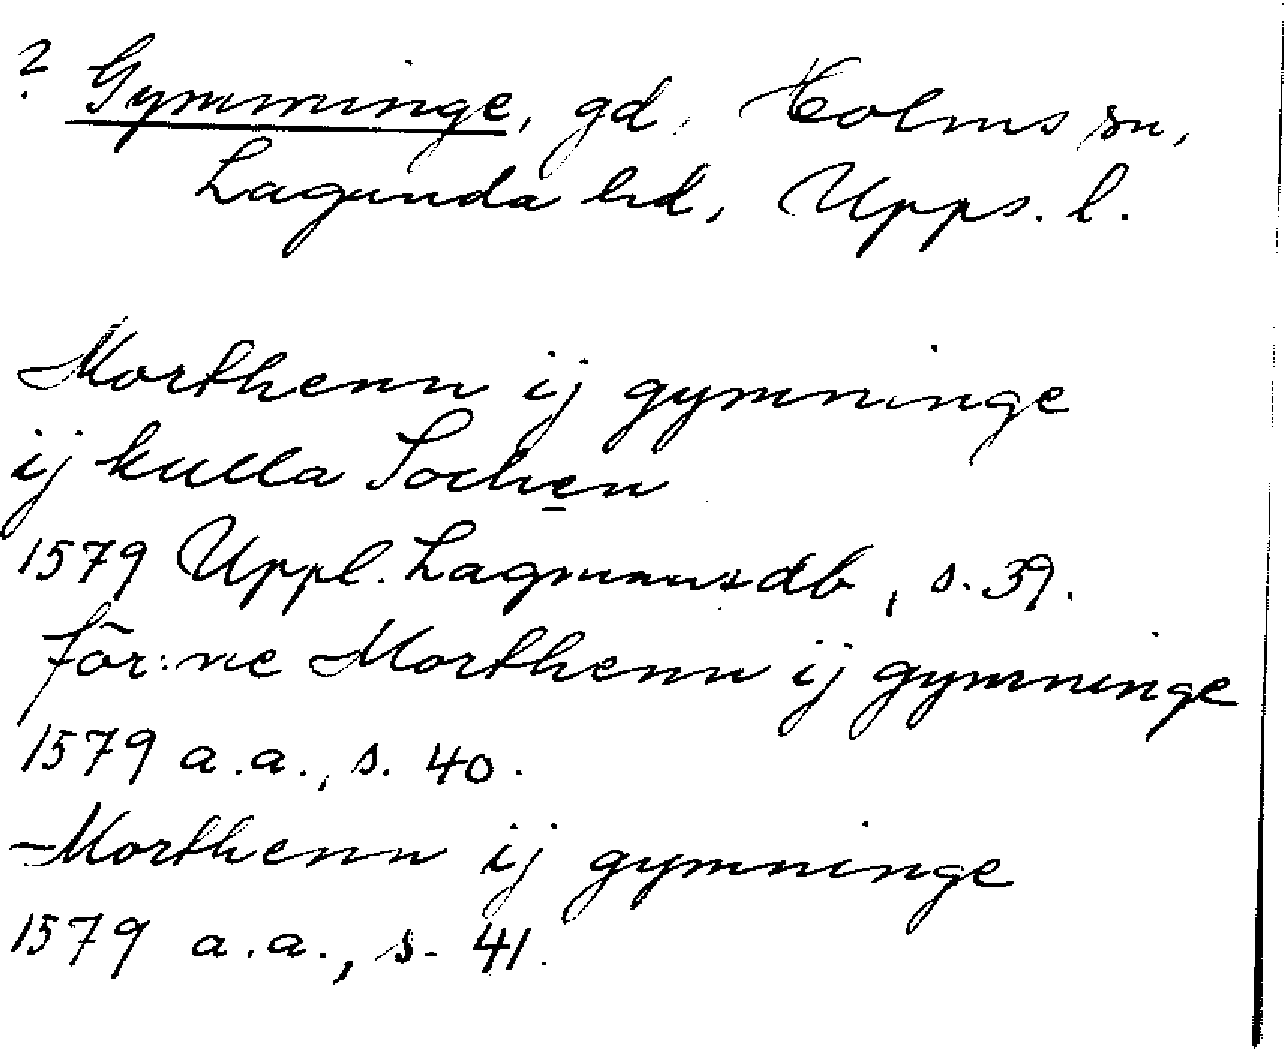 ? Gymminge, gd, Holms sn,
Lagunda hd, Upps. l.
Morthenn ij gymninge
ij kulla Sochen
1579 Uppl. Lagmansdb, s. 39.
för:ne Morthenn ij gymninge
1579 a.a., s. 40.
Morthenn ij gymninge
1579 a.a., s. 41.